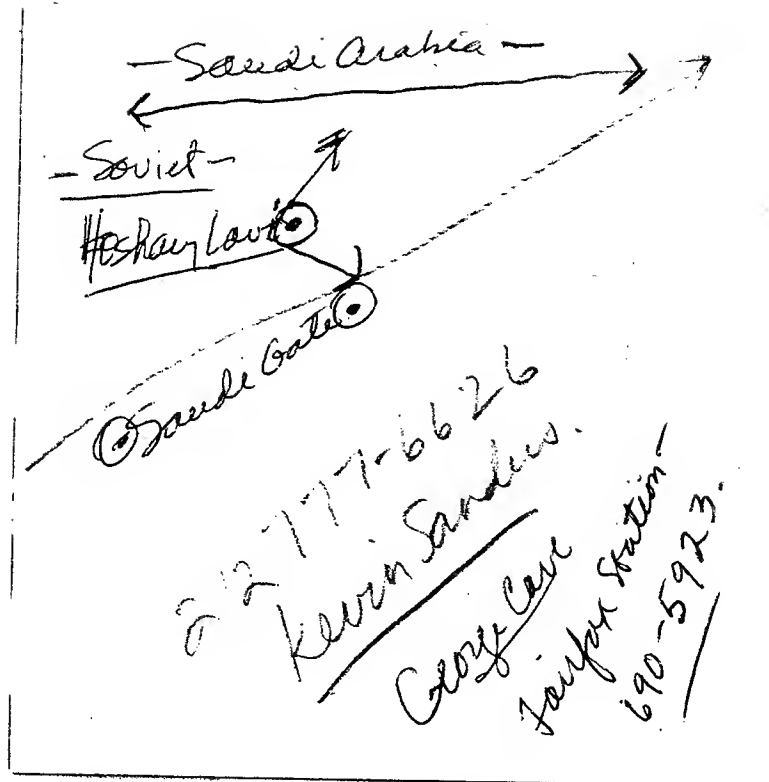 - Saudi Arabia -
- Soviet -
Hoshang Lavi
Saudi Gate
212 777-6626
Kevin Sanders.
George Cave
Fairfax Station -
690-5923.